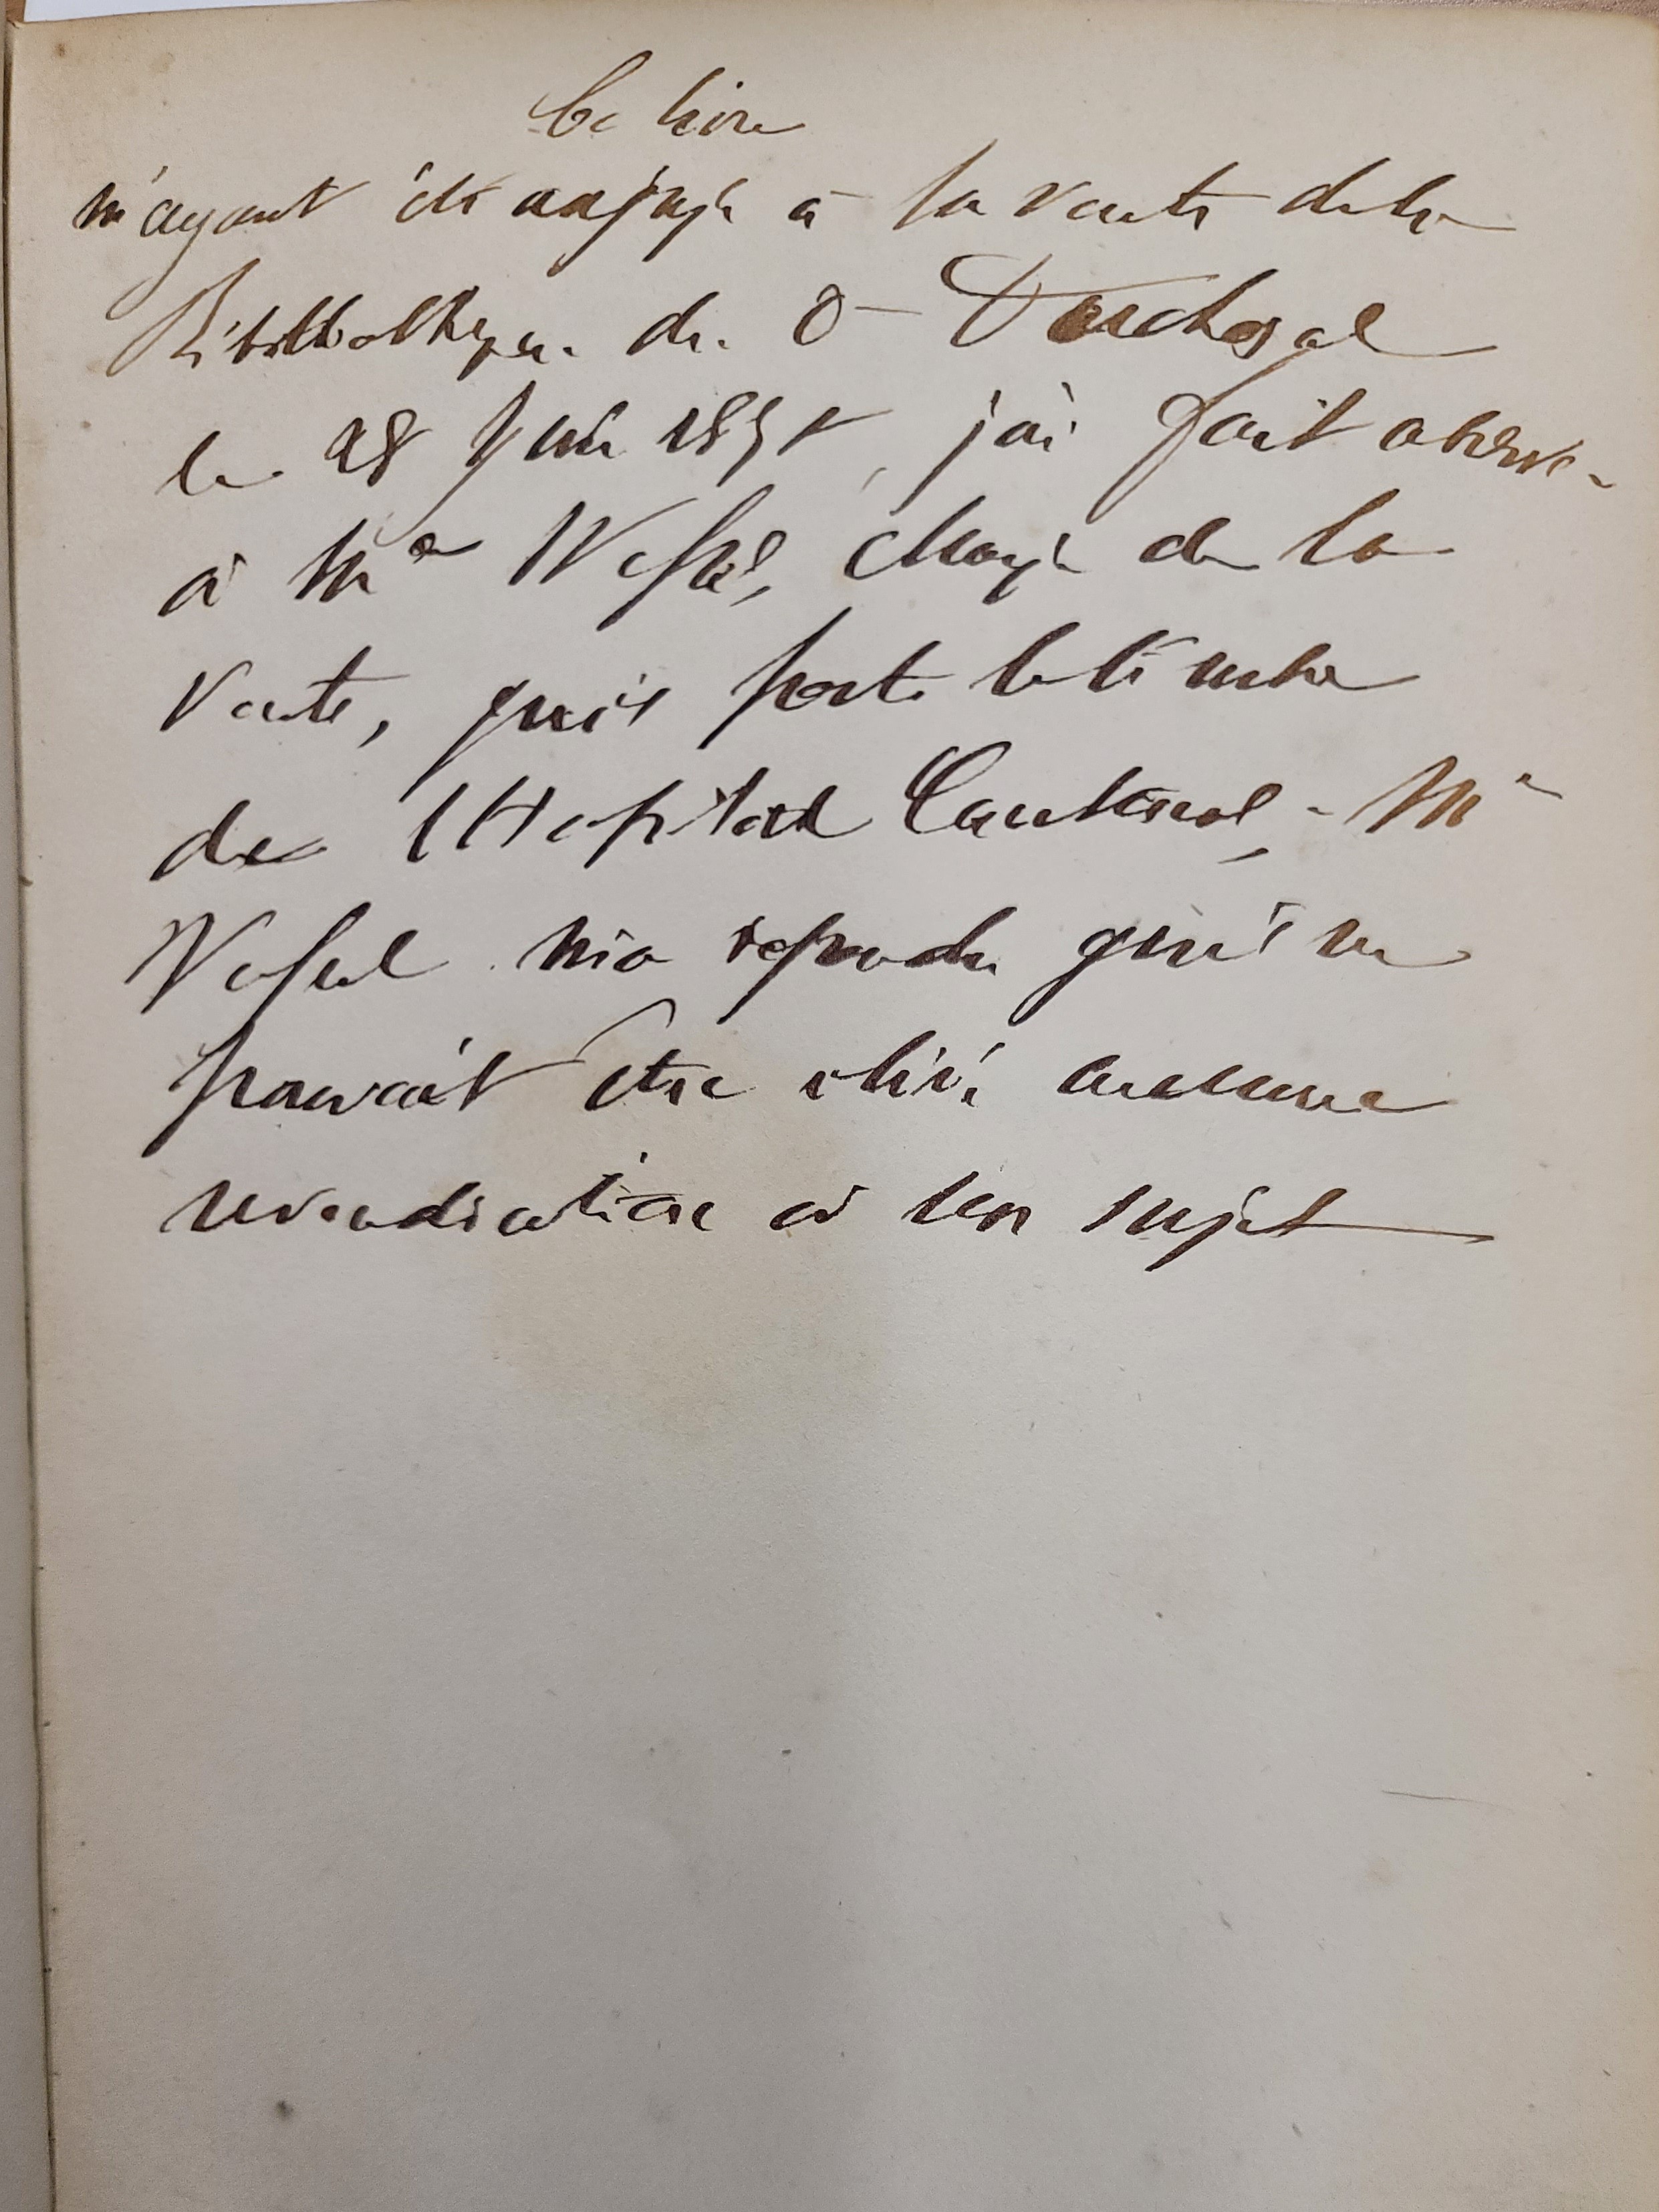 Ce livre
m'ayant été adjugé à la vente de la
Bibliothèque de D
le 28 Juin, j'ai fait observer
à Me Vesfel, chargé de la
vente, qu'il porte le timbre
de l'Hopital Cantonal, - Me
Vesfel m'a repondu qu'il ne
pouvait être élévé aucune
revendication à son sujet